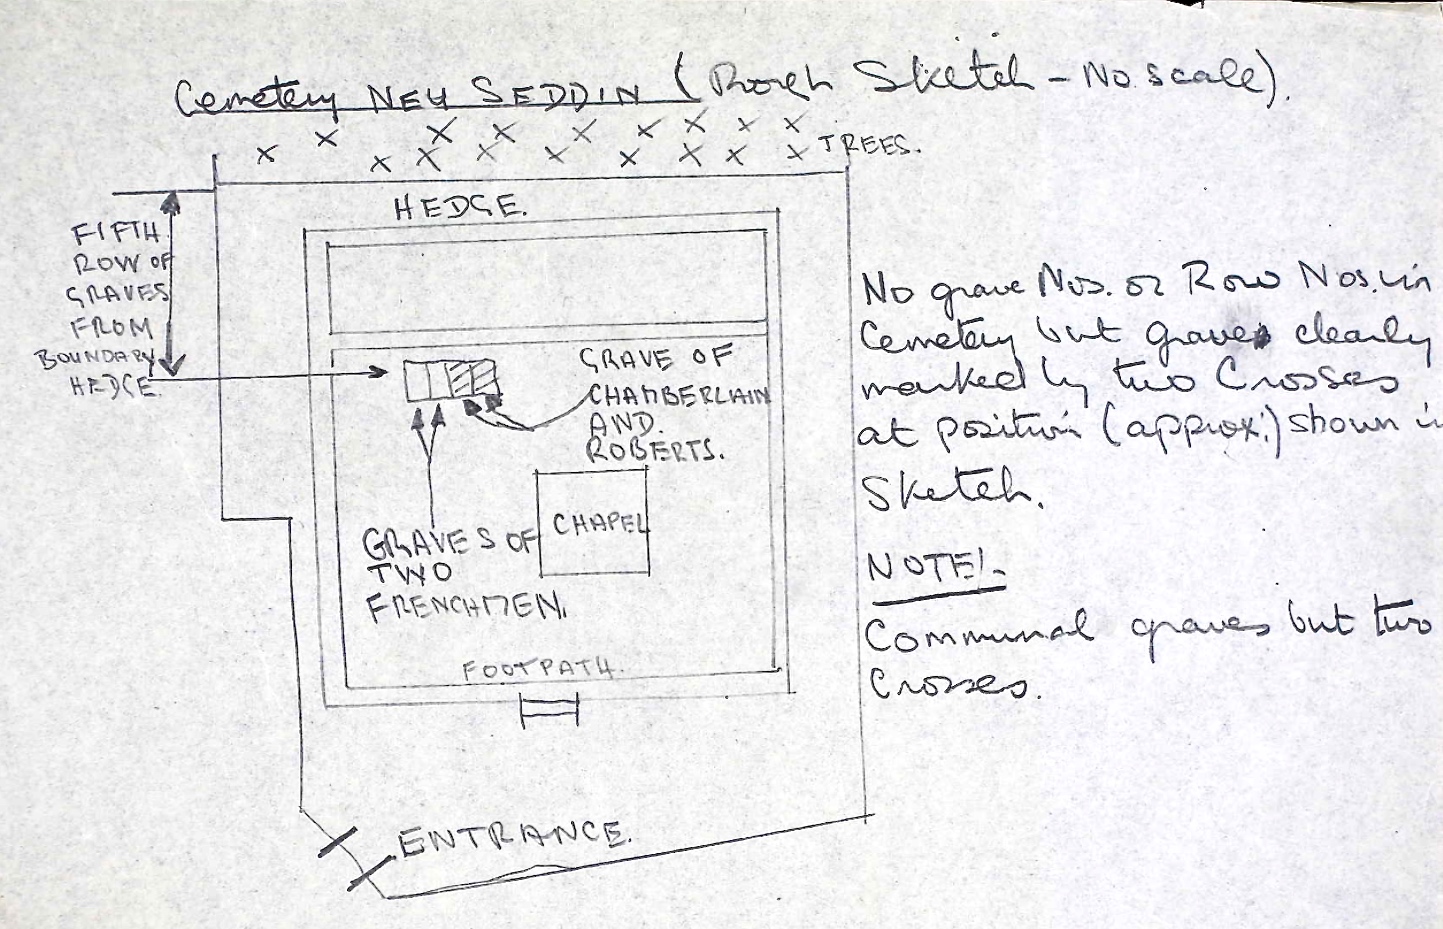 Cemetery NEU SEDDIN (Rough Sketch - No scale).
TREES.
HEDGE.
FIFTH
ROW OF
GRAVES
FROM
BOUNDARY
HEDGE.
GRAVE OF
CHAMBERLAIN
AND.
ROBERTS.
CHAPEL
GRAVES OF
TWO
FRENCHMEN.
FOOTPATH.
ENTRANCE.
No grave Nos. or Row Nos. in
Cemetery but graves clearly
marked by two Crosses
at position (approx:) shown in
Sketch.
NOTE!-
Communal graves but two
Crosses.